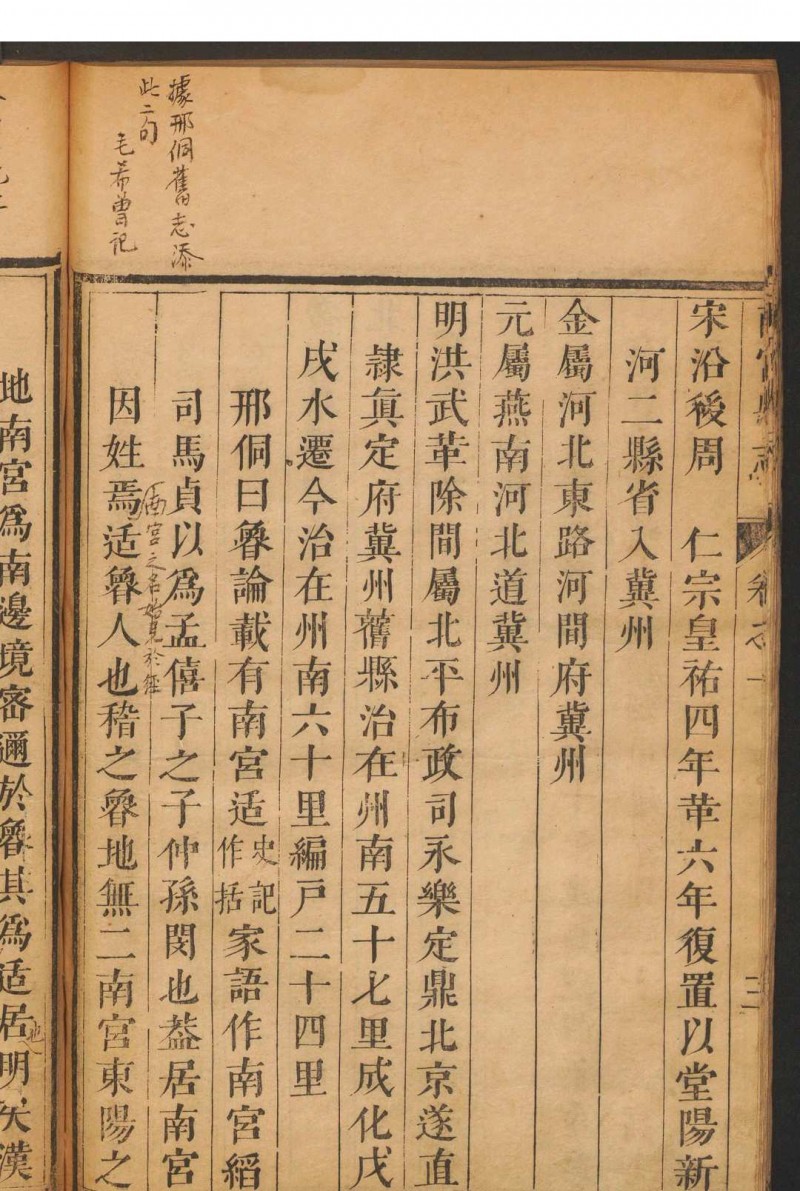 據邢侗舊志添
此二句
毛希曾記
南宮縣志
卷之一
三
宋沿後周 仁宗皇祐四年革六年復置以堂陽新
河二縣省入冀州
金屬河北東路河間府冀州
元屬燕南河北道冀州
明洪武革除間屬北平布政司永樂定鼎北京遂直
隸眞定府冀州舊縣治在州南五十七里成化戊
戌水遷今治在州南六十里編戸二十四里
邢侗曰魯論載有南宮适史記作括家語作南宮縚
司馬貞以爲孟僖子之子仲孫閱也葢居南宮
因姓焉适魯人也稽之魯地無二南宮東陽之
宮之名始見於經
地南宮爲南邊境密邇於魯其爲适居明矣漢
地